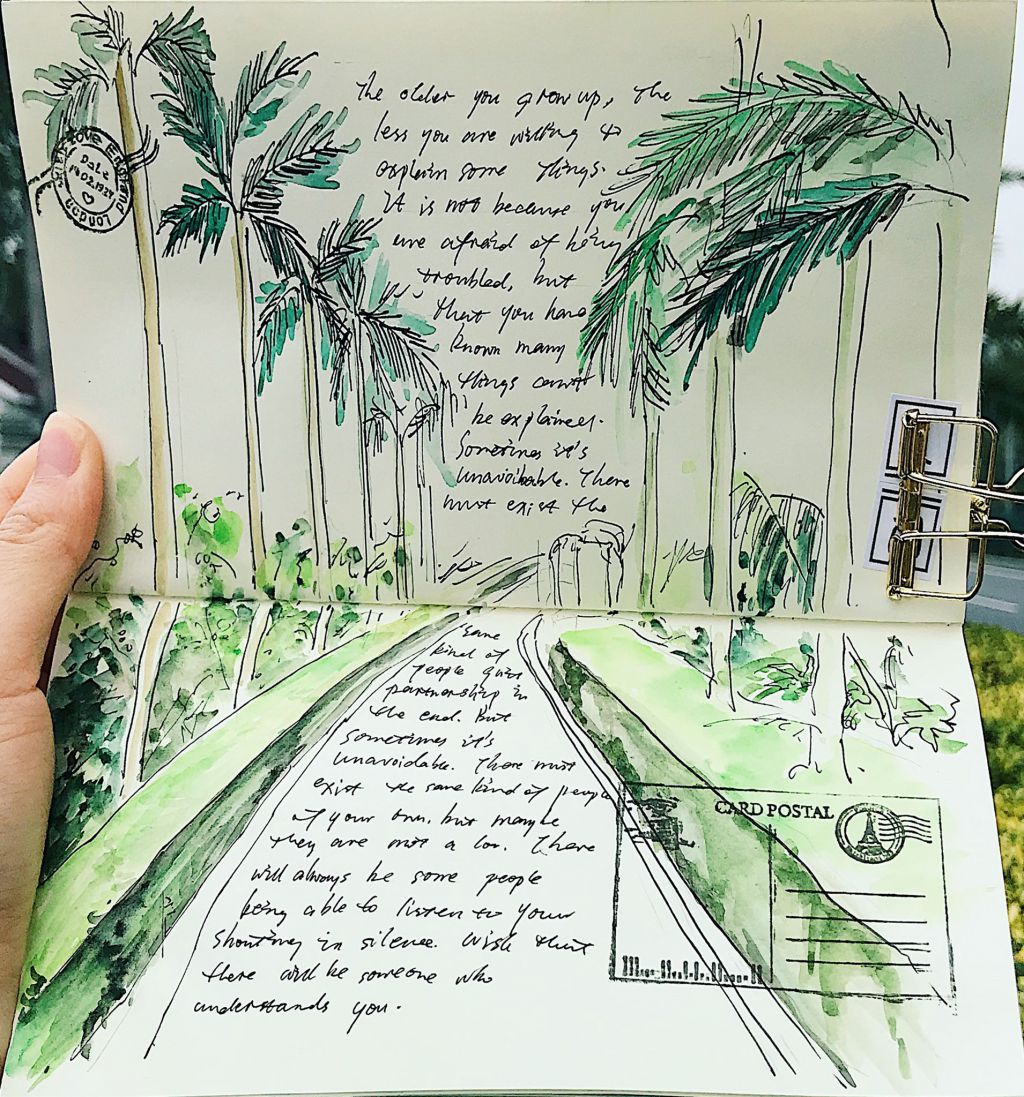 The older you grow up, the
less you are willing to
explain some things.
It is not because you
are afraid of being
troubled, but
that you have
known many
things cannot
be explained.
Sometimes it's
unavoidable. There
must exist the
same
kind of
people
partnership in
the end. But
sometimes it's
unavoidable. There must
exist the same kind of people
of your own. but maybe
they are not a lot. There
will always be some people
being able to listen to your
shouting in silence. Wish that
there will be someone who
understands you.
Date
14.02.1929
London
England
CARD POSTAL